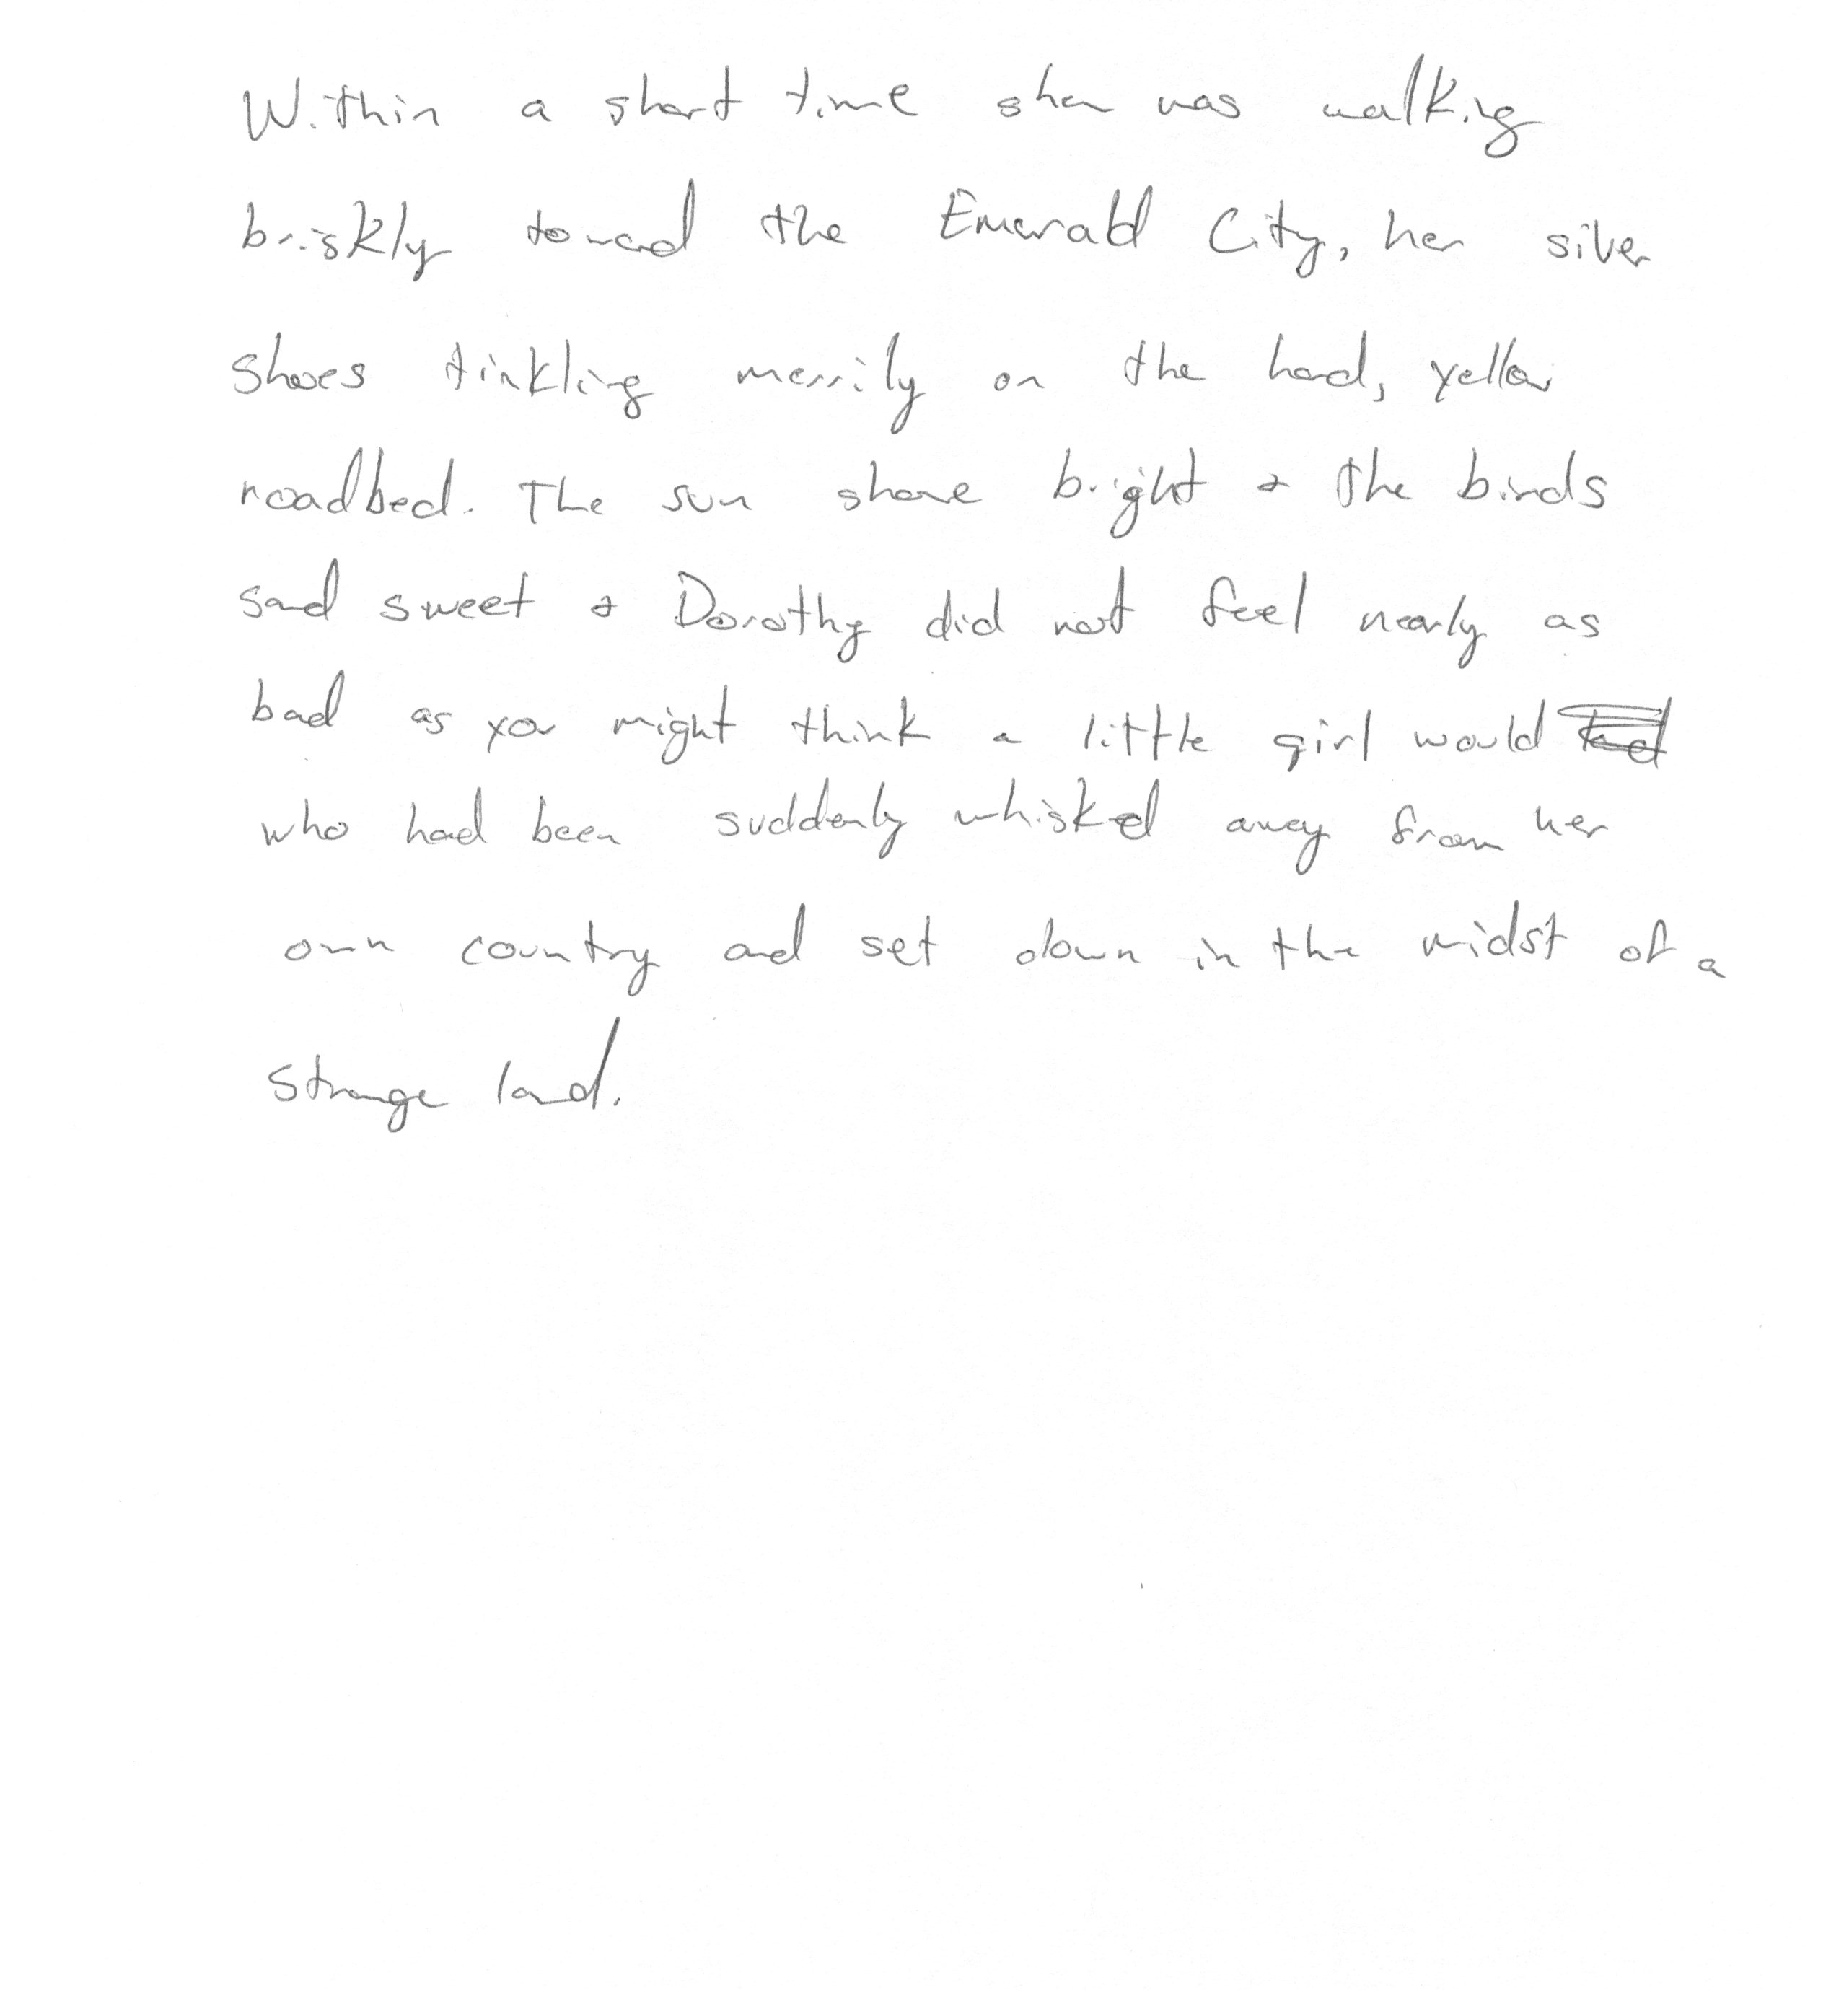 Within a short time she was walking
briskly toward the Emerald City, her silver
shoes tinkling merrily on the hard, yellow
roadbed. The sun shone bright & the birds
sand sweet & Dorothy did not feel nearly as
bad as you might think a little girl would
who had been suddenly whisked away from her
own country and set down in the midst of a
strange land.